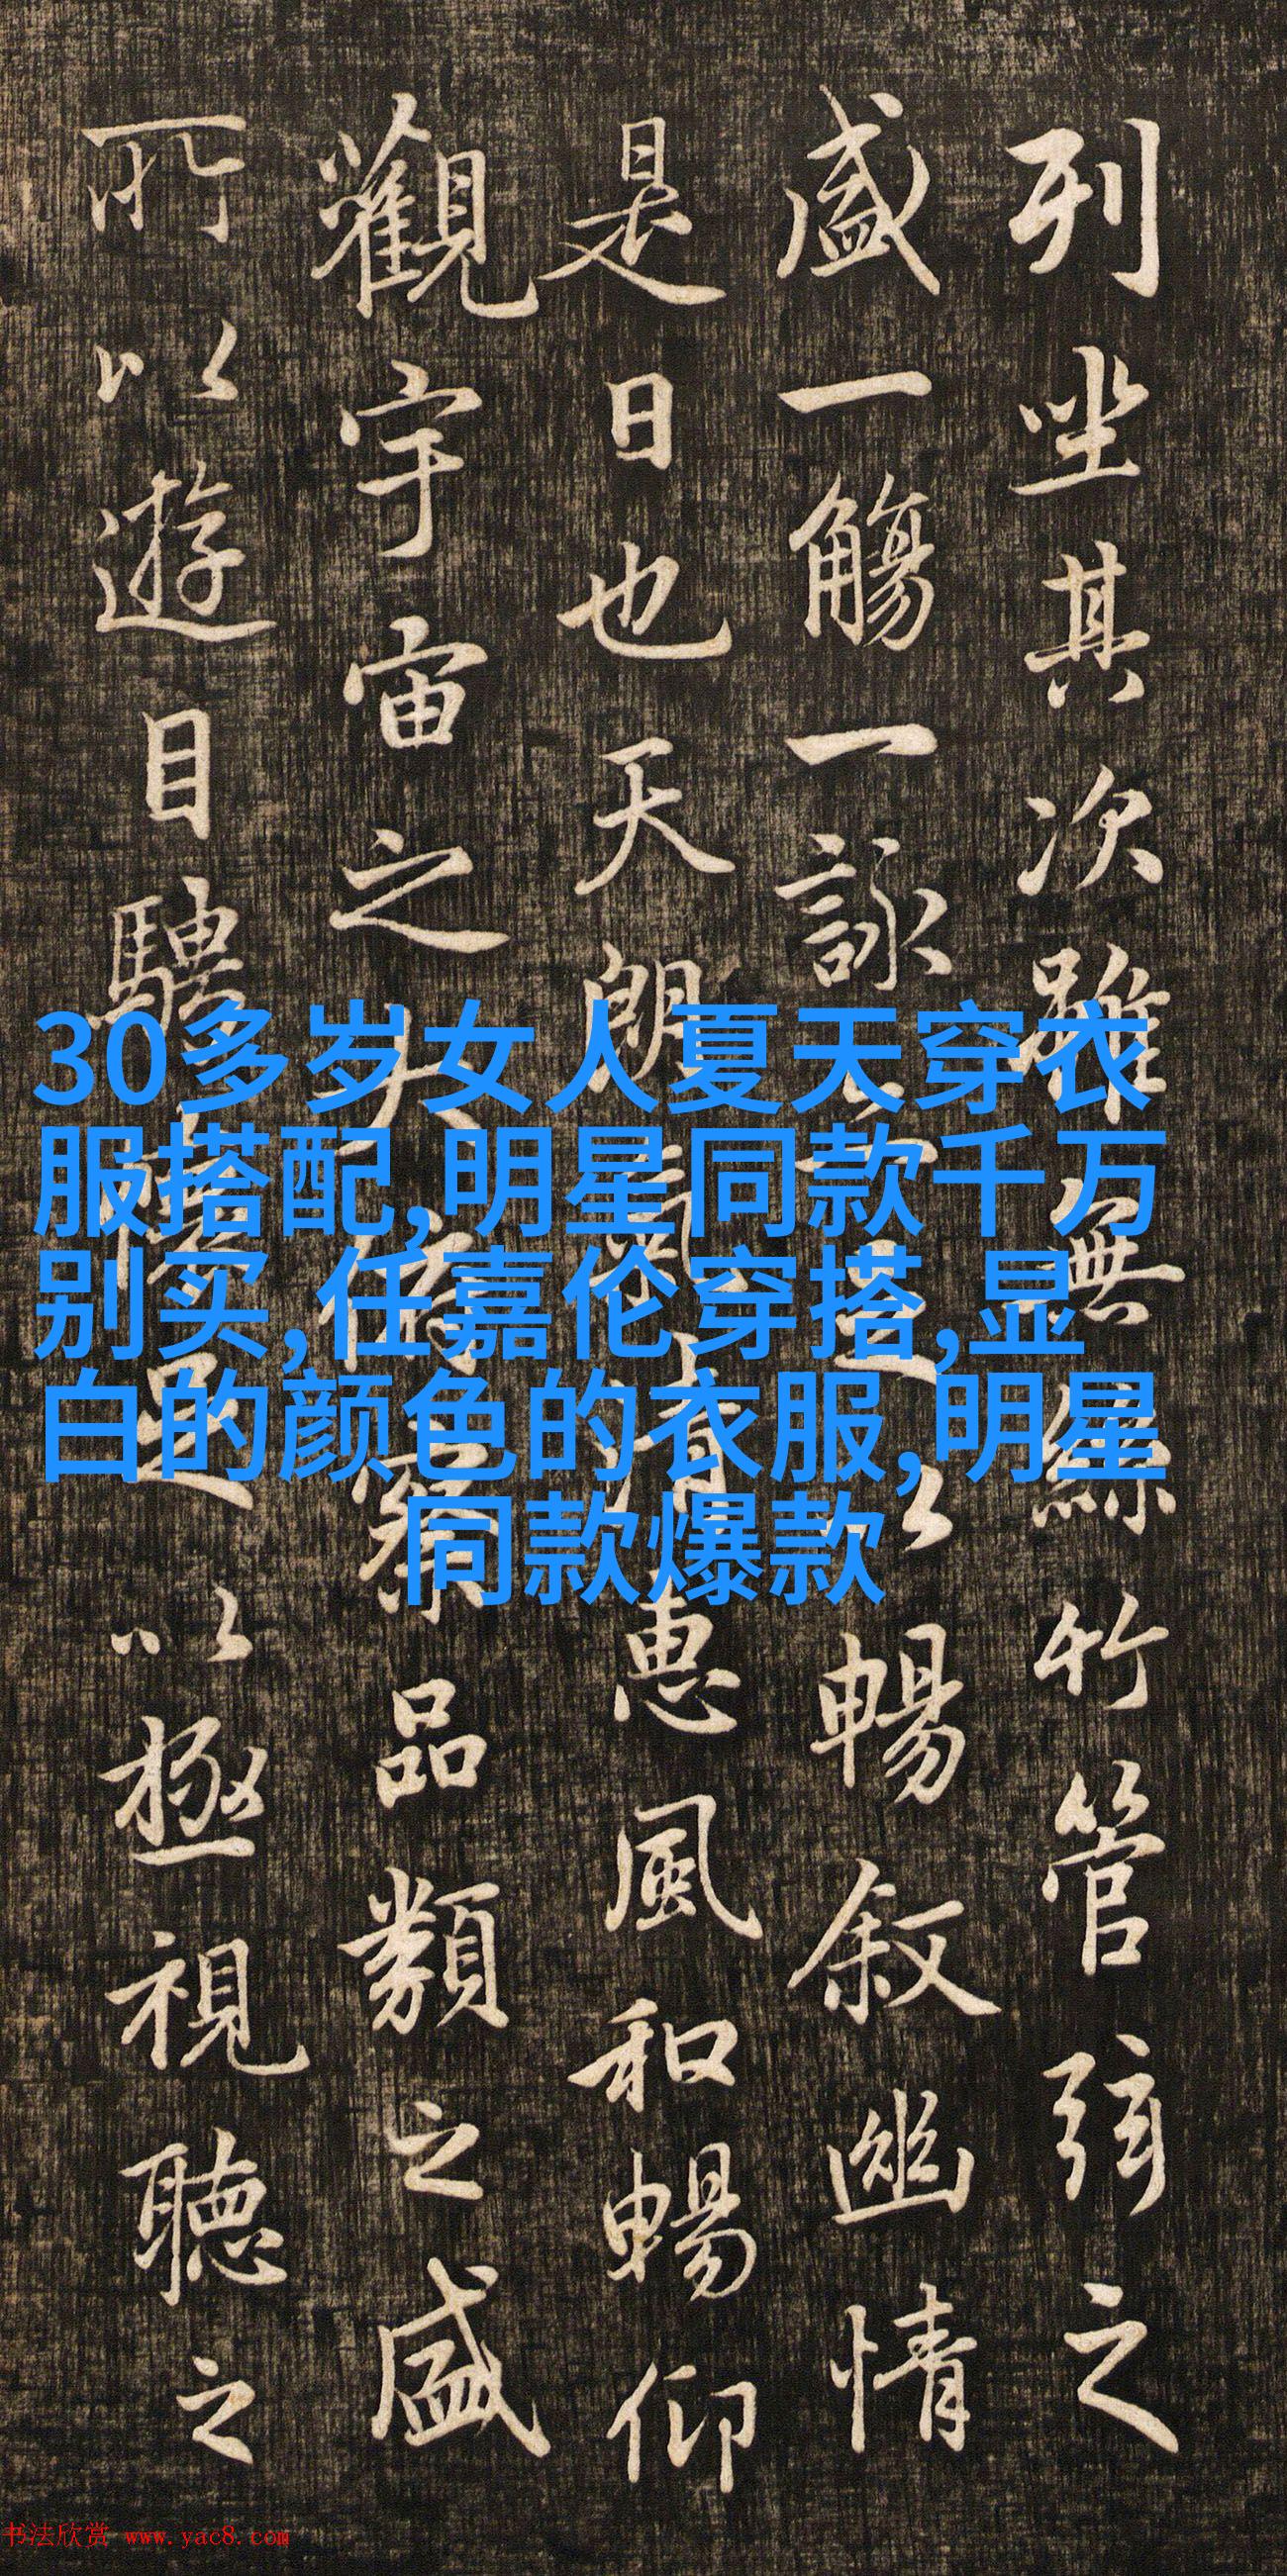 列坐其次雖無絲竹管弦之
盛一觴一詠亦足以暢叙幽情
是日也天朗氣清惠風和暢仰
觀宇宙之大俯察品類之盛
所以遊目騁懷足以極視聽之
30多岁女人夏天穿衣
服搭配,明星同款千万
别买,任嘉伦穿搭,显
白的颜色的衣服,明星
同款爆款
书法欣赏 www.yac8.com